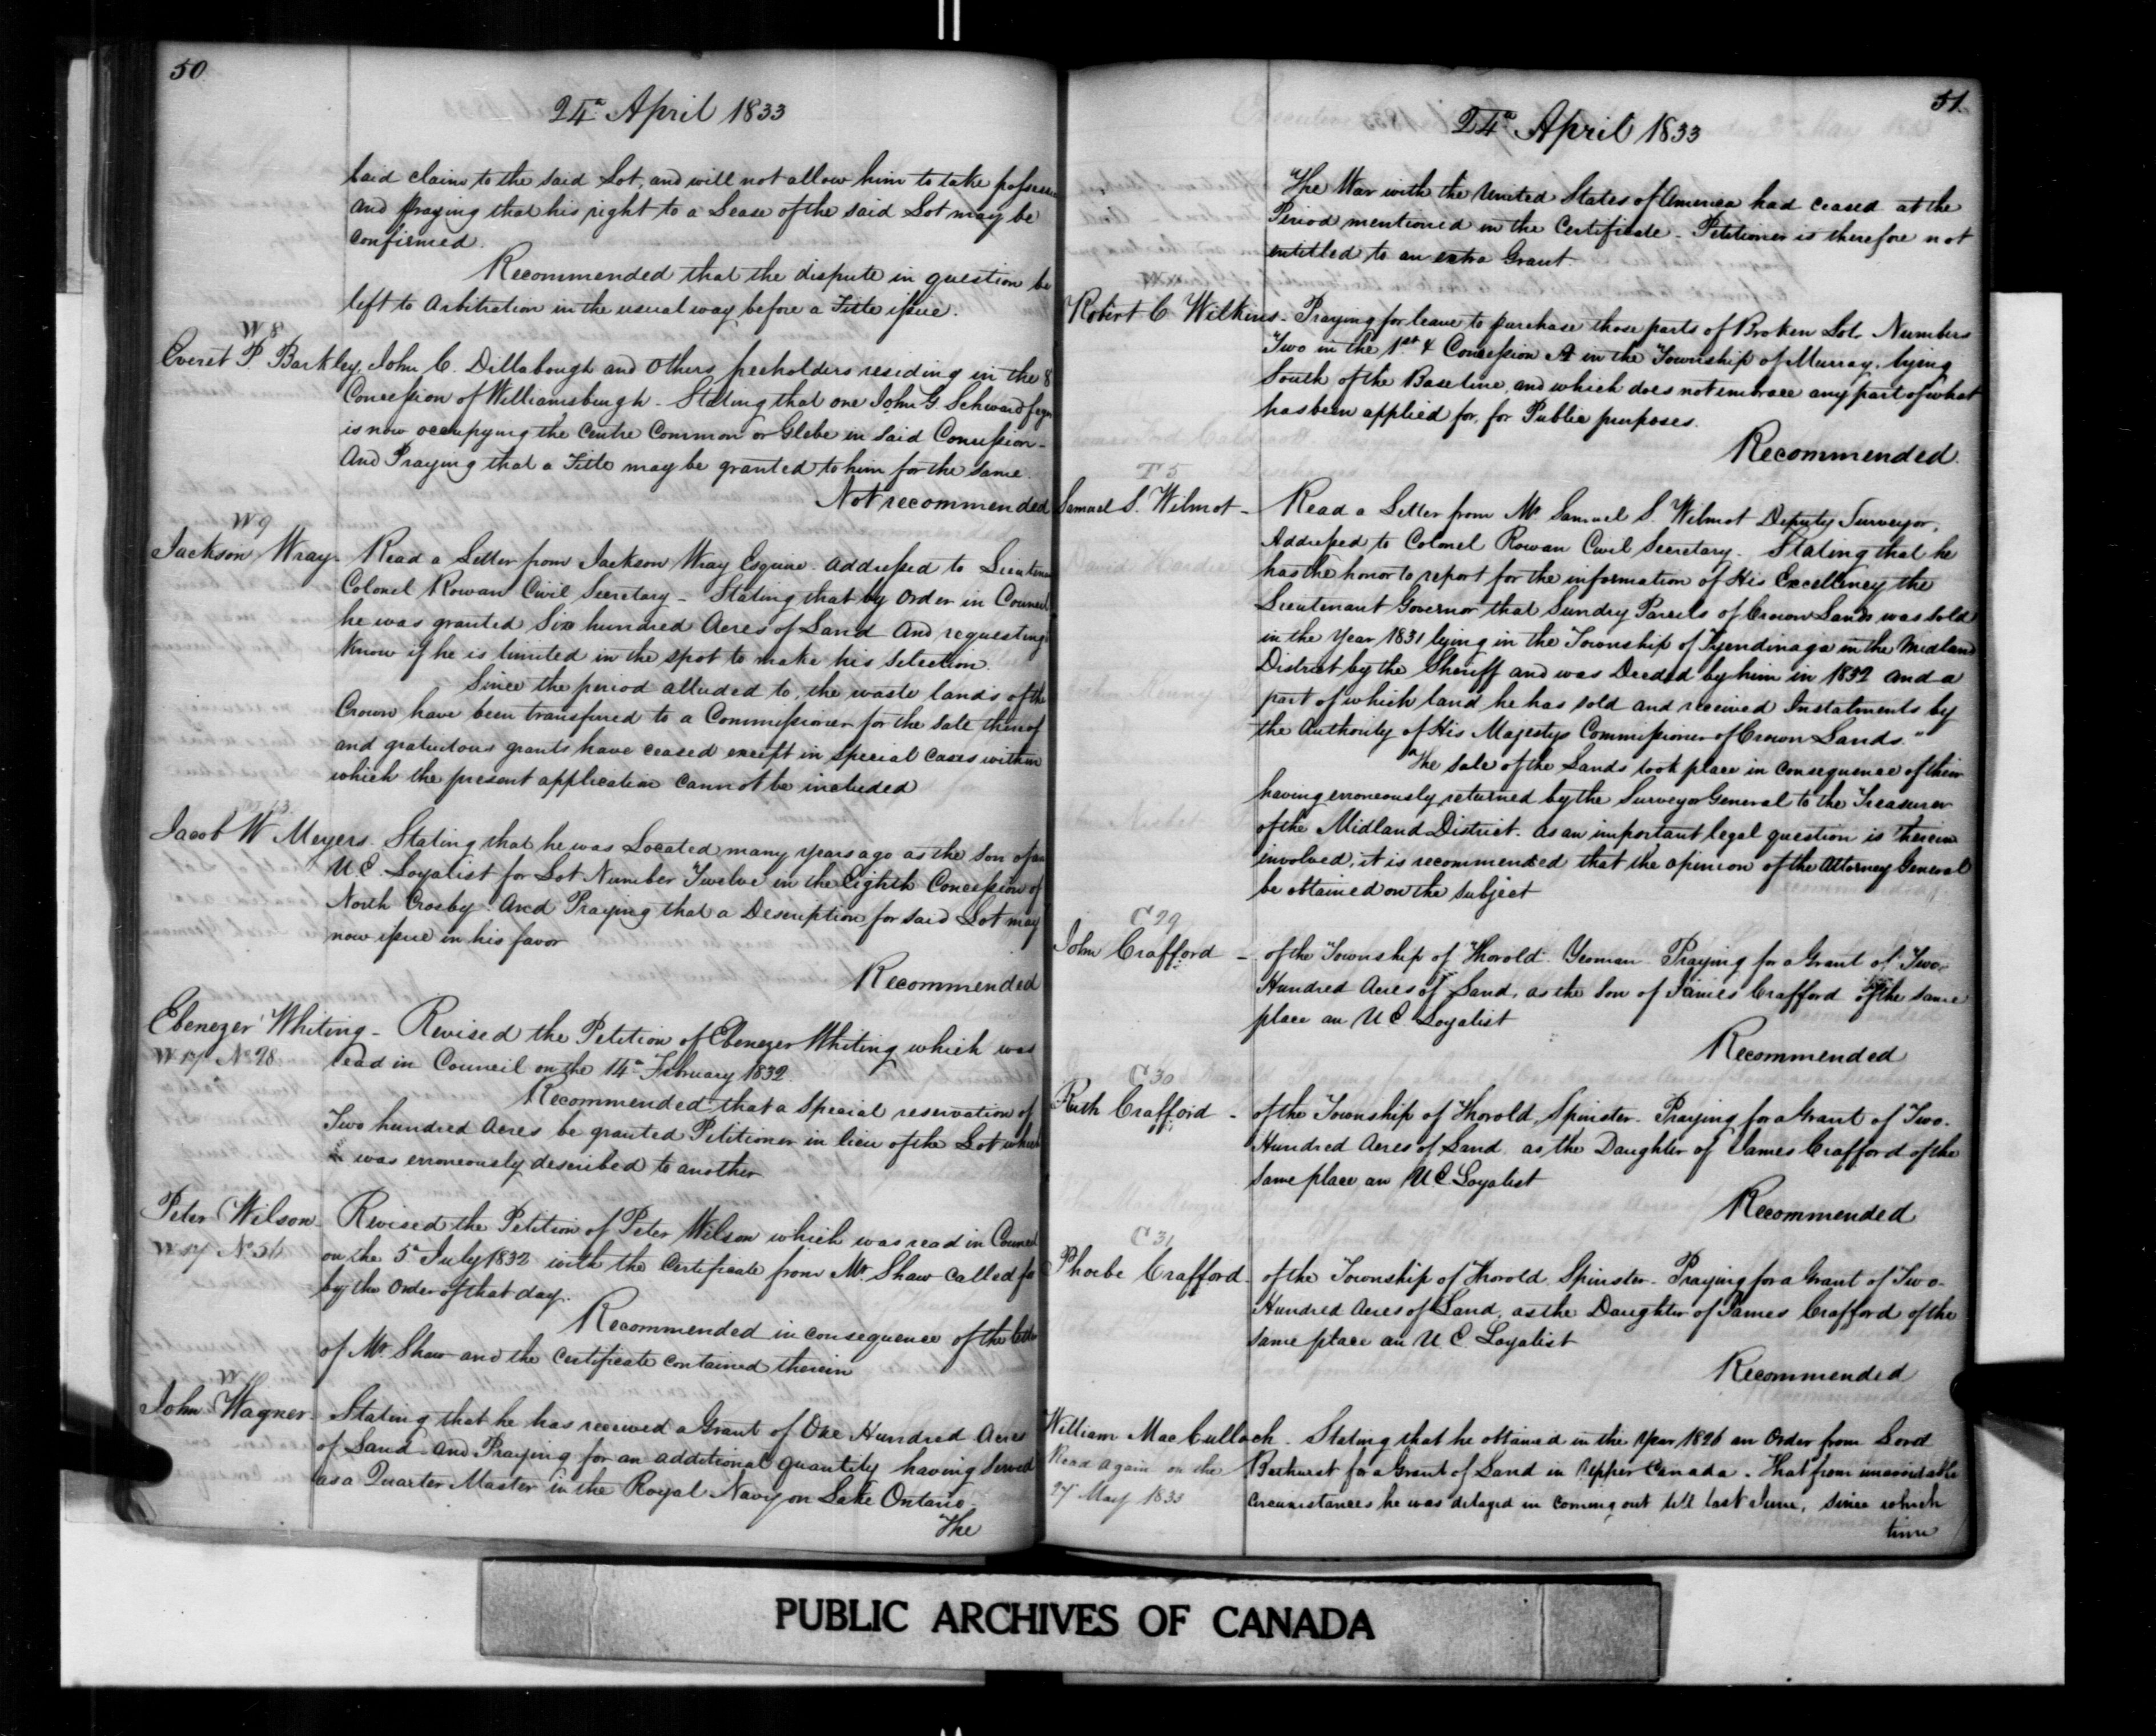 50
24th April 1833
laid claim to the said Lot, and will not allow him to take possession
and praying that his right to a Lease of the said Lot may be
confirmed.
Recommended that the dispute in question be
left to Arbitration in the usual way before a Title issue.
W 8
Everet P. Barkley, John C. Dillabough and others freeholders residing in the 8
Concession of Williamsburgh - Stating that one John G. Schwardfeger
is now occupying the Centre Common or Glebe in said Concession -
And Praying that a Title may be granted to him for the same.
Not recommended
W 9
Jackson Wray - Read a Letter from Jackson Wray Esquire. addressed to Lieutenant
Colonel Rowan Civil Secretary - Stating that by Order in Council
he was granted Six hundred Acres of Land And requesting to
Know if he is limited in the spot to make his Selection.
Since the period alluded to, the waste lands of the
Crown have been transfered to a Commissioner for the Sale thereof
and gratuitous grants have ceased except in special cases within
which the present application cannot be included
Jacob W Meyers. Stating that he was Located many years ago as the Son of an
U.E. Loyalist for Lot Number Twelve in the Eighth Concession of
North Crosby. And Praying that a Description for said Lot may
now issue in his favor
Recommended
Ebenezer Whiting - Revised the Petition of Ebenezer Whiting which was
W 17 No 28 read in Council on the 14th February 1832.
Recommended that a Special reservation of
Two hundred Acres be granted Petitioner in lieu of the Lot which
was erroneously described to another
Peter Wilson - Revised the Petition of Peter Wilson which was read in Council
W 17 No 56 on the 5th July 1832 with the Certificate from Mr. Shaw called for
by the Order of that day.
Recommended in consequence of the letter
of Mr. Shaw and the Certificate contained therein
W
John Wagner - Stating that he has received a Grant of One Hundred Acres
of Land - and Praying for an additional quantity having Served
as a Quarter Master in the Royal Navy on Lake Ontario.
The
51
24th April 1833
The War with the United States of America had ceased at the
Period mentioned in the Certificate - Petitioner is therefore not
entitled to an extra Grant.
Robert C Wilkins - Praying for leave to purchase those parts of Broken Lots Numbers
Two in the 1st & Concession A in the Township of Murray, lying
South of the Baseline, and which does not embrace any part of what
has been applied for, for Public purposes.
Recommended.
T 5
Samuel S. Wilmot - Read a Letter from Mr Samuel S. Wilmot Deputy Surveyor,
Addressed to Colonel Rowan Civil Secretary. Stating that he
has the honor to report for the information of His Excellency the
Lieutenant Governor that Sundry Parcels of Crown Lands was sold
in the Year 1831 lying in the Township of Tyendinaga in the Midland
District by the Sheriff and was Deeded by him in 1832 and a
part of which land he has sold and received Instalments by
the Authority of His Majestys Commissioner of Crown Lands."
The sale of the Lands took place in consequence of their
having erroneously returned by the Surveyor General to the Treasurer
of the Midland District. as an important legal question is therein
involved, it is recommended that the opinion of the Attorney General
be obtained on the subject
C 29
John Crafford - of the Township of Thorold. Yeoman - Praying for a Grant of Two
Hundred Acres of Land, as the Son of James Crafford of the same
place an U E Loyalist
Recommended
C 30
Ruth Crafford - of the Township of Thorold, Spinster - Praying for a Grant of Two
Hundred Acres of Land as the Daughter of James Crafford of the
same place an U E Loyalist
Recommended
C 31
Phoebe Crafford - of the Township of Thorold Spinster - Praying for a Grant of Two
Hundred Acres of Land, as the Daughter of James Crafford of the
same place an U E. Loyalist
Recommended
William Mac Cullock - Stating that he obtained in the Year 1826 an Order from Lord
Read again on the Bathurst for a Grant of Land in Upper Canada. That from unavoidable
27 May 1833 Circumstances he was delayed in coming out till last June, since which
time
PUBLIC ARCHIVES OF CANADA